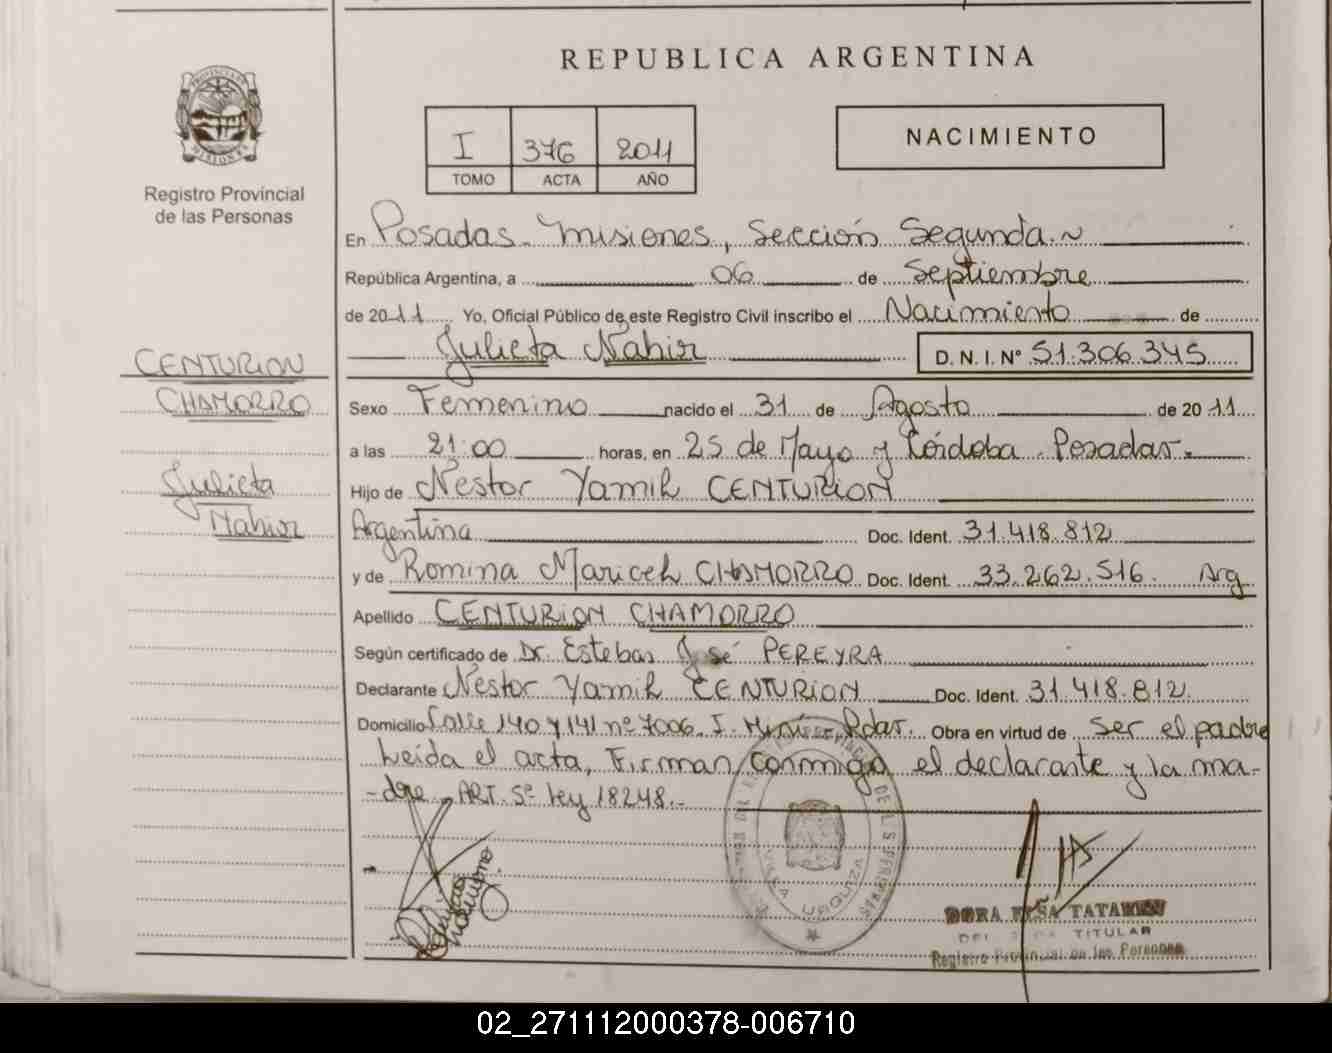 REPUBLICA ARGENTINA
I 376 2011
TOMO ACTA AÑO
NACIMIENTO
PROVINCIA DE MISIONES
Registro Provincial
de las Personas
CENTURION
CHAMORRO
Julieta
Nahir
En Posadas. Misiones, Sección Segunda.~
República Argentina, a 06 de Septiembre
de 2011 Yo, Oficial Público de este Registro Civil inscribo el Nacimiento de
Julieta Nahir D. N. I. Nº 51.306.345
Sexo Femenino nacido el 31 de Agosto de 2011
a las 21:00 horas, en 25 de Mayo y Córdoba. Posadas.
Hijo de Nestor Yamil CENTURION
Argentina Doc. Ident. 31.418.812
y de Romina Maricel CHAMORRO Doc. Ident. 33.262.516. Arg
Apellido CENTURION CHAMORRO
Según certificado de Dr. Esteban José PEREYRA
Declarante Nestor Yamil CENTURION Doc. Ident. 31.418.812
Domicilio Calle 140 y 141 nº 7006. I. Mini. Pdas. Obra en virtud de ser el padre
Leida el acta, Firman conmigo el declarante y la ma-
-dre. ART. 5º ley 18248.-
VILLA URQUIZA
DORA TATAREN
TITULAR
Registro Provincial de las Personas
02_271112000378-006710